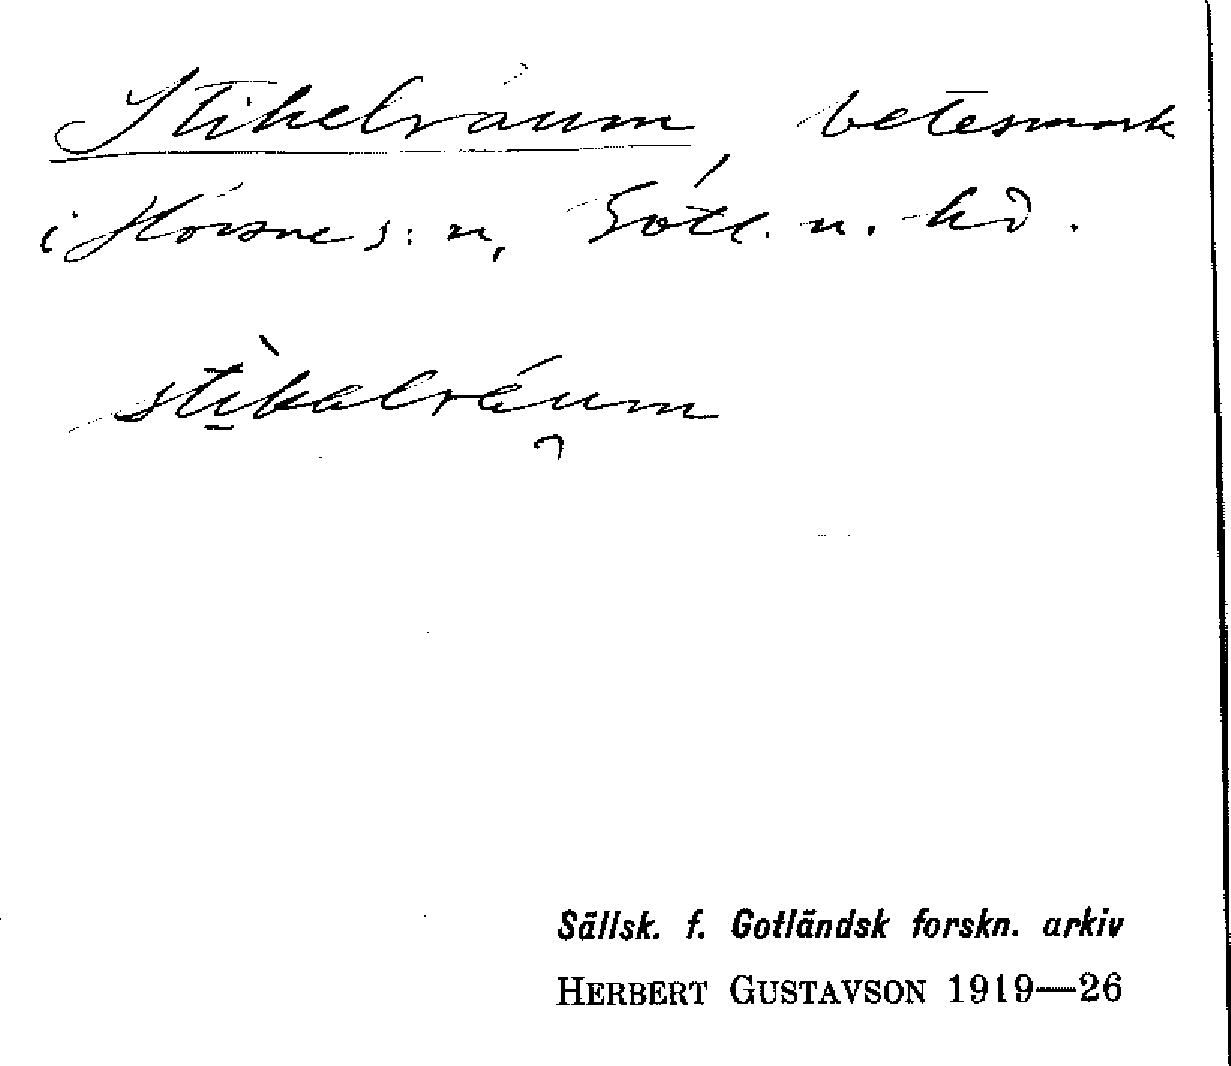 Stikelráum betesmark
i Hörsne s:n, Gotl. n. hd.
stìkalráum
Sällsk. f. Gotländsk forskn. arkiv
HERBERT GUSTAVSON 1919—26